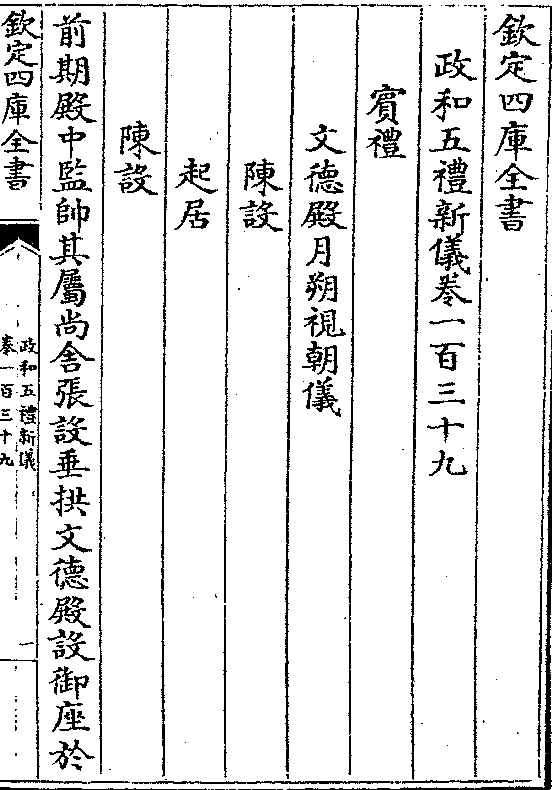 欽定四庫全書
政和五禮新儀卷一百三十九
賓禮
文德殿月朔視朝儀
陳設
起居
陳設
前期殿中監帥其屬尚舎張設垂拱文德殿設御座於
欽定四庫全書
政和五禮新儀
卷一百三十九
一